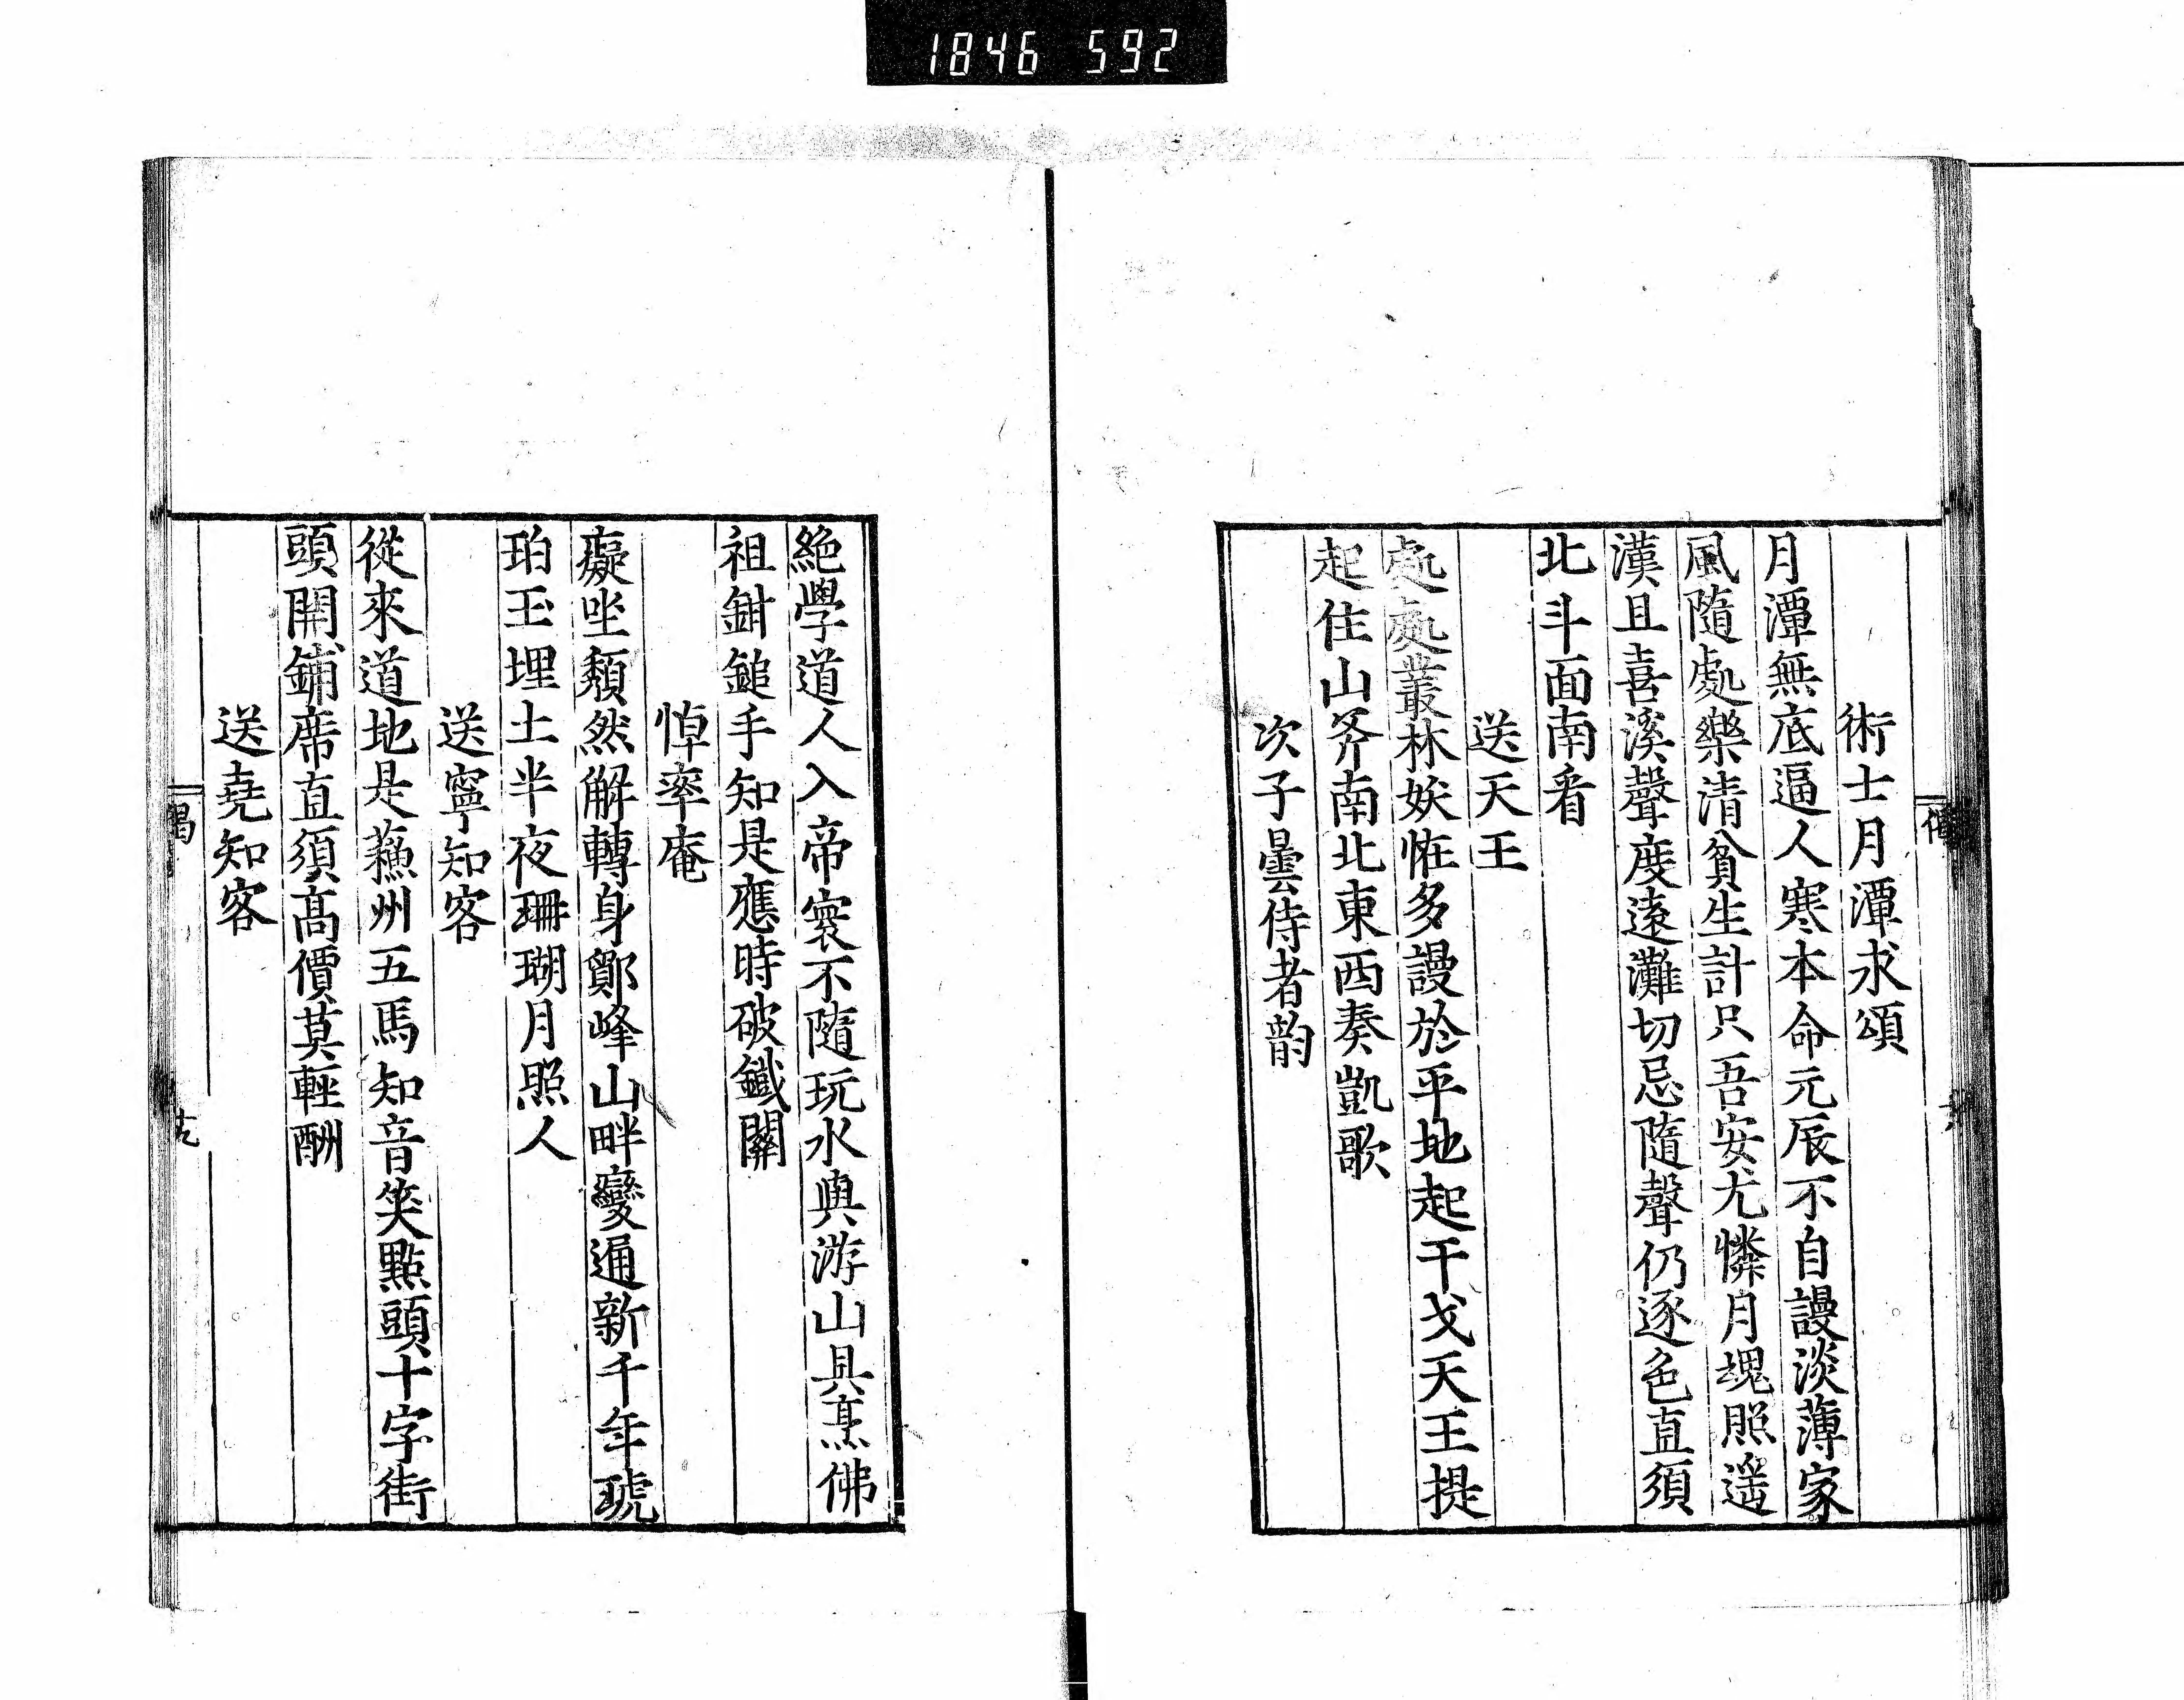 1846 592
術士月潭求頌
月潭無底逼人寒本命元辰不自謾淡薄家
風隨處樂清貧生計只吾安尤憐月塊照遥
漢且喜溪聲度遠灘切忌隨聲仍逐色直須
北斗面南看
送天王
處處叢林妖恠多謾於平地起干戈天王提
起住山斧南北東西奏凱歌
次子曇侍者韵
絶學道人入帝寰不隨玩水與游山具烹佛
祖鉗鎚手知是應時破鐵關
悼率庵
癡坐頽然解轉身鄮峰山畔變通新千年琥
珀玉埋土半夜珊瑚月照人
送寧知客
從來道地是蘓州五馬知音笑點頭十字街
頭開鋪席直須高價莫輕酬
送堯知客
偈
十九